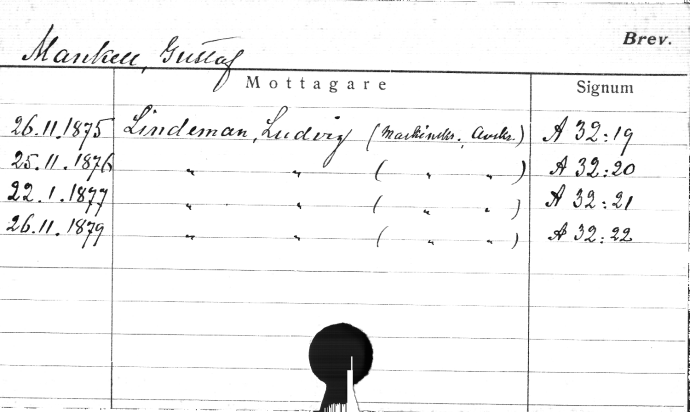 Brev.
Mankell, Gustaf
Mottagare Signum
26.11.1875 Lindeman, Ludvig (Maskinskr. Avskr.) A 32:19
25.11.1876 " " ( " " ) A 32:20
22.1.1877 " " ( " " ) A 32:21
26.11.1879 " " ( " " ) A 32:22